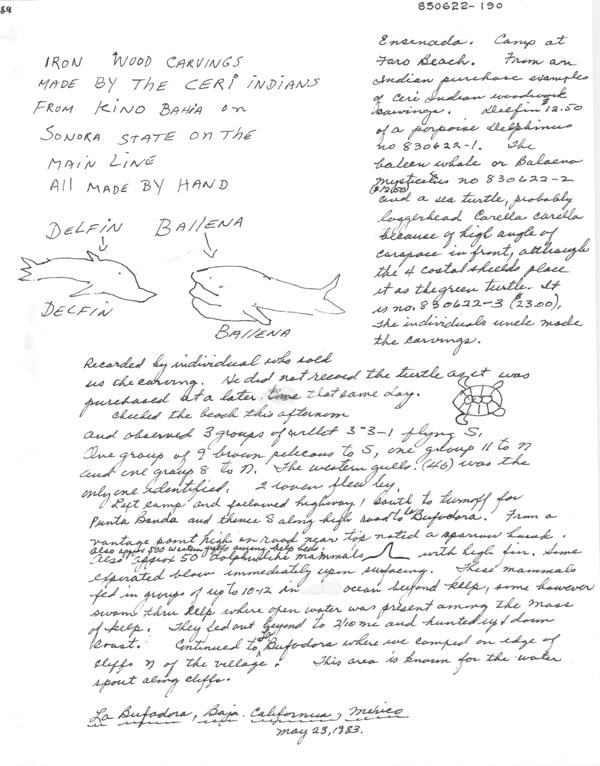 84
830622-190
IRON WOOD CARVINGS
MADE BY THE CERI INDIANS
FROM KINO BAHIA on
SONORA STATE ON THE
MAIN LINE
All MADE BY HAND
DELFIN BALLENA
DELFIN
BALLENA
Ensenada. Camp at
Faro Beach. From an
Indian purchase examples
of Ceri Indian woodwork
carvings. Delfin $12.50
of a porpoise Delphinus
no 830622-1. The
baleen whale or Balaena
mysticetus no 830622-2
($12.50)
and a sea turtle, probably
loggerhead Carella carella
because of high angle of
carapace in front, although
the 4 costal shields place
it as the green turtle. It
is no. 830622-3 ($23.00),
The individuals uncle made
the carvings.
Recorded by individual who sold
us the carving. He did not record the turtle as it was
purchased at a later time that same day.
Checked the beach this afternoon
and observed 3 groups of willet 3-3-1 flying S,
One group of 9 brown pelicans to S, one group 11 to N
and one group 8 to N. The western gulls (46) was the
only one identified. 2 flew by.
Left camp and followed highway 1 south to turnoff for
Punta Banda and thence S along high road to La Bufadora. From a
vantage point high on road near top noted a sparrow hawk.
Also approx 500 western gulls among kelp beds.
Also approx 50 dolphin like mammals with high fin. Some
expirated blow immediately upon surfacing. These mammals
fed in groups of up to 10-12 in ocean beyond kelp, some however
swam thru kelp where open water was present among the mass
of kelp. They fed out beyond to 2/10 mi and hunted up & down
coast. Continued to La Bufadora where we camped on edge of
cliffs N of the village. This area is known for the water
spout along cliffs.
La Bufadora, Baja California, Mexico
May 23, 1983.